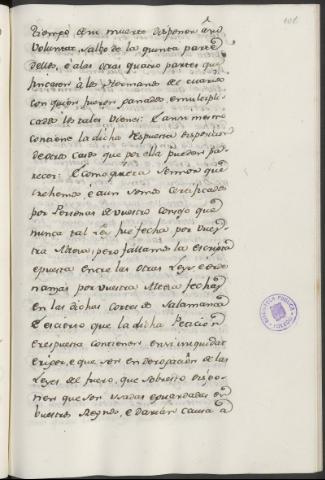 101
tiempo de su muerte disponer a su
voluntad, salvo de la quinta parte
dellos, e a las otras quatro partes que
fincasen a los Hermanos de
con quien fueron ganados e multipli-
cados los tales vienes: E ansi mesmo
contiene la dicha respuesta disposicion
de cierto caso que por ella pueden pa-
recer: E como quiera Señor que
crehemos, e aun somos certificados
por Personas de vuestro consejo que
nunca tal Ley fue fecha por vues-
tra Alteza, pero fallamos la escripta
e puesta entre las otras Leyes e orde-
nanzas por vuestra Alteza fechas
en las dichas cortes de Salamanca
E es cierto que la dicha Peticion
e respuesta contienen en si iniquidad
e rigor, e que son en derogacion de las
Leyes del fuero, que sobresto dispo-
nen que son usadas e guardadas en
vuestros Reynos, e darian causa a
BIBLIOTECA PUBLICA
TOLEDO